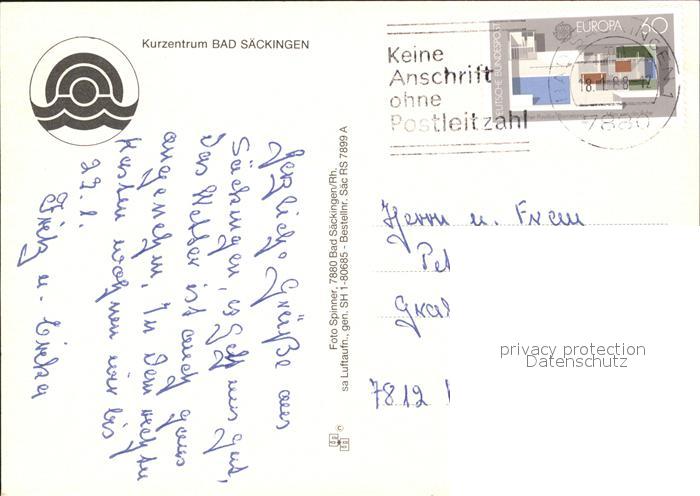 Kurzentrum BAD SÄCKINGEN
Herzliche Grüße aus
Säckingen, es geht uns gut,
das Wetter ist auch ganz
angenehm. In dem rechten
Kasten wohnen wir bis
22.1.
Fritz u.
Foto Spinner, 7880 Bad Säckingen/Rh.
sa Luftaufn., gen. SH 1-80685 - Bestellnr. Säc RS 7899 A
Keine
Anschrift
ohne
Postleitzahl
DEUTSCHE BUNDESPOST
EUROPA 60
18.1.88-12
7880
Herrn u. Frau
Pet
7812
privacy protection
Datenschutz